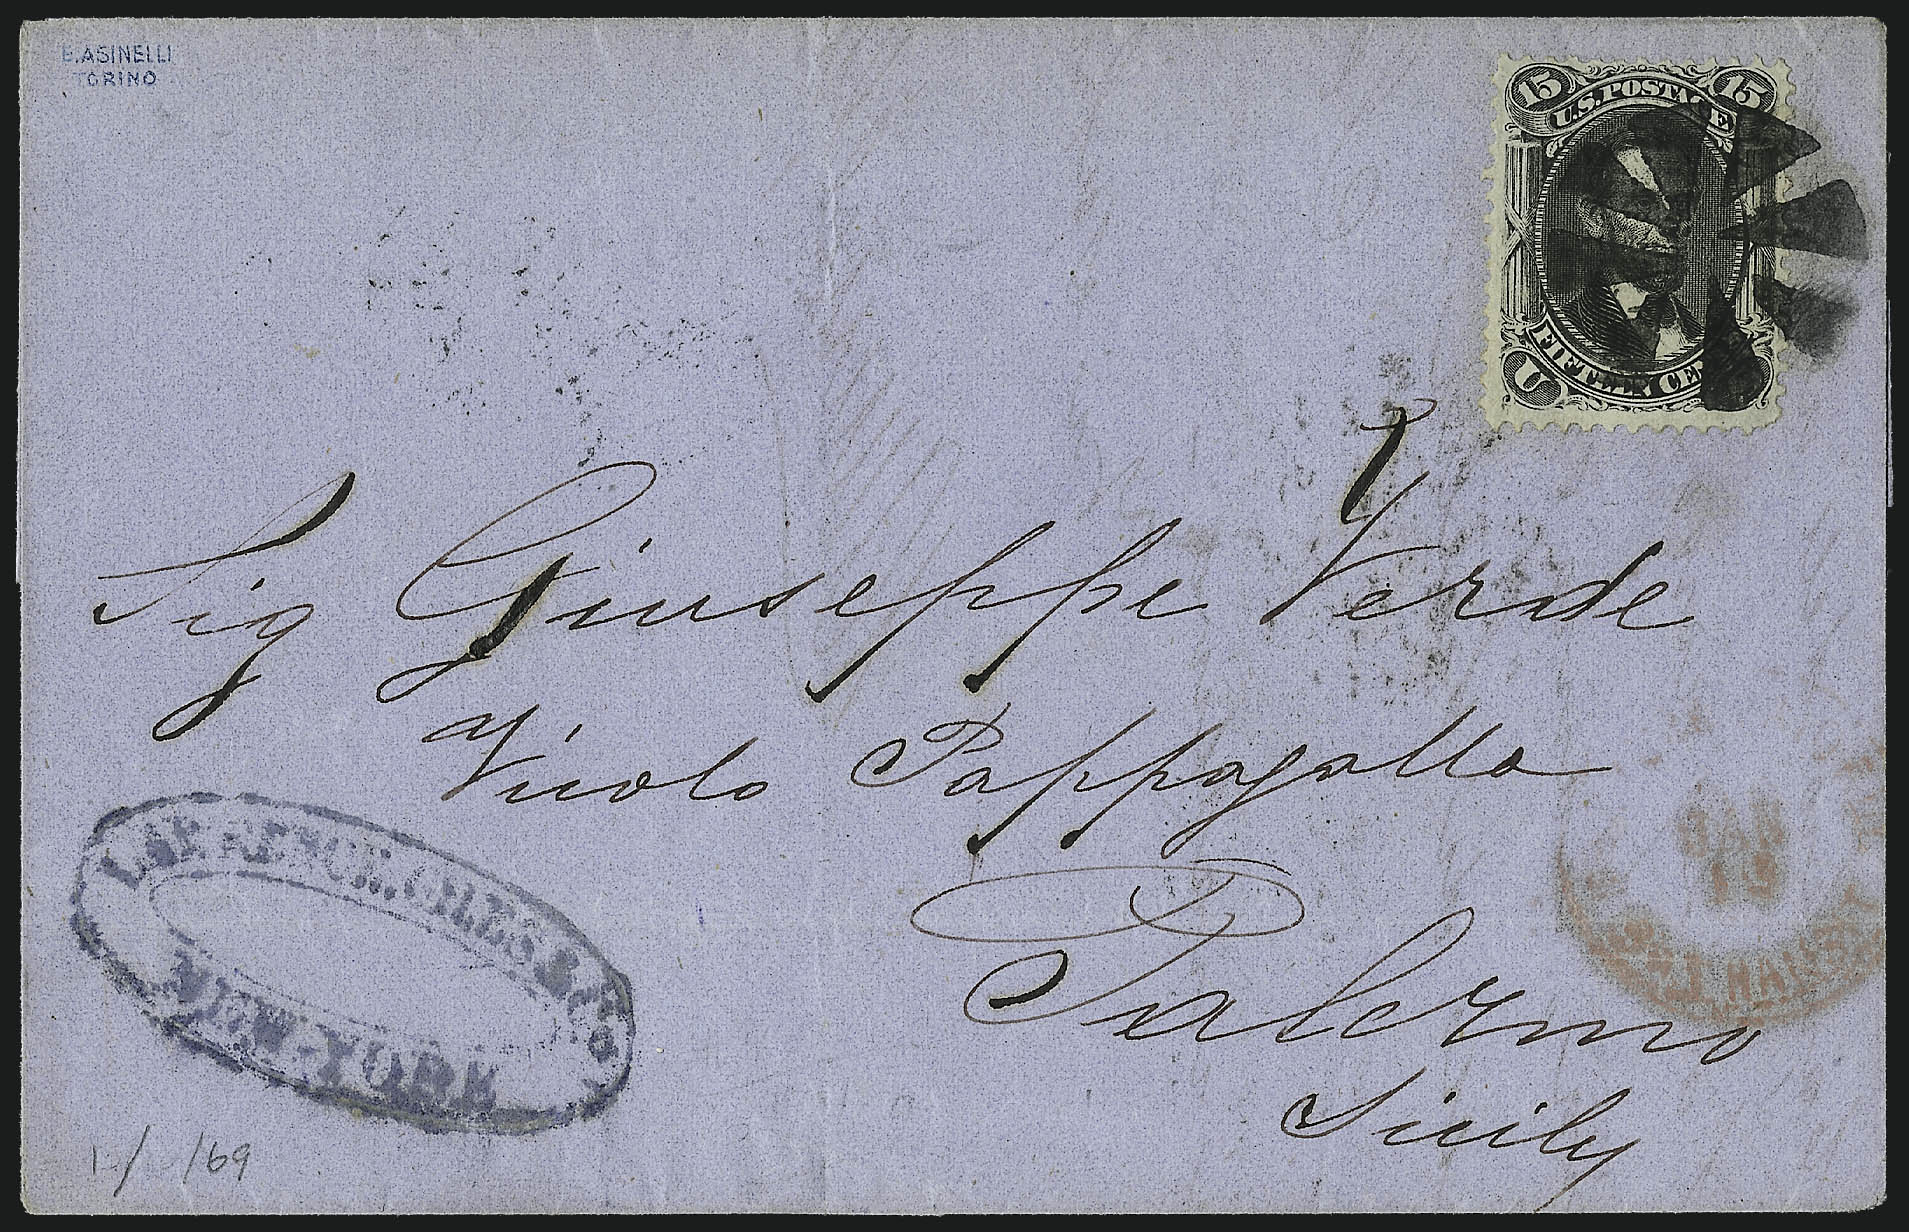 E. ASINELLI
TORINO
15 U.S. POSTAGE 15
FIFTEEN CE
U
Sig Giuseppe Verde
Vicolo Pappagallo
Palermo
Sicily
GILES & Co
NEW-YORK
JAN
TRANSIT
/69